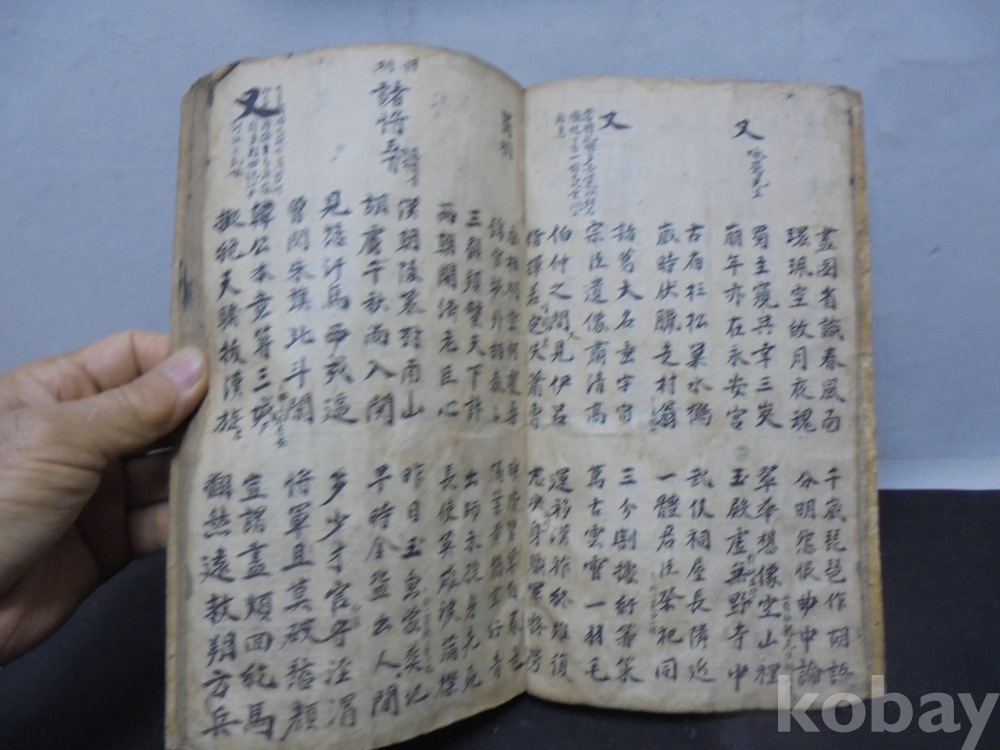 又
畫图省識春風面 千歲琵琶作胡語
環珮空故月夜魂 分明怨恨曲中論
蜀主窺吳幸三峽 翠華想像空山裡
崩年亦在永安宮 玉殿虛無野寺中
古廟杉松巢水鶴 武侯祠屋長隣近
歲時伏臘走村翁 一體君臣祭祀同
又
諸葛大名垂宇宙 三分割據紆籌策
宗臣遺像肅清高 萬古雲霄一羽毛
伯仲之間見伊呂 運移漢祚終難復
指揮若定失蕭曹 志決身殲軍務勞
丞相祠堂何處尋 映階碧草自春色
錦官城外柏森森 隔葉黃鸝空好音
三顧頻繁天下計 出師未捷身先死
兩朝開濟老臣心 長使英雄淚滿襟
諸將五首
漢朝陵墓對南山 昨日玉魚蒙葬地
胡虜千秋尙入關 早時金盌出人間
見愁汗馬西戎逼 多少才官守涇渭
曾閃朱旗北斗閑 將軍且莫破愁顏
又
韓公本意築三城 豈謂盡煩回紇馬
擬絕天驕拔漢旌 翻然遠救朔方兵
kobay